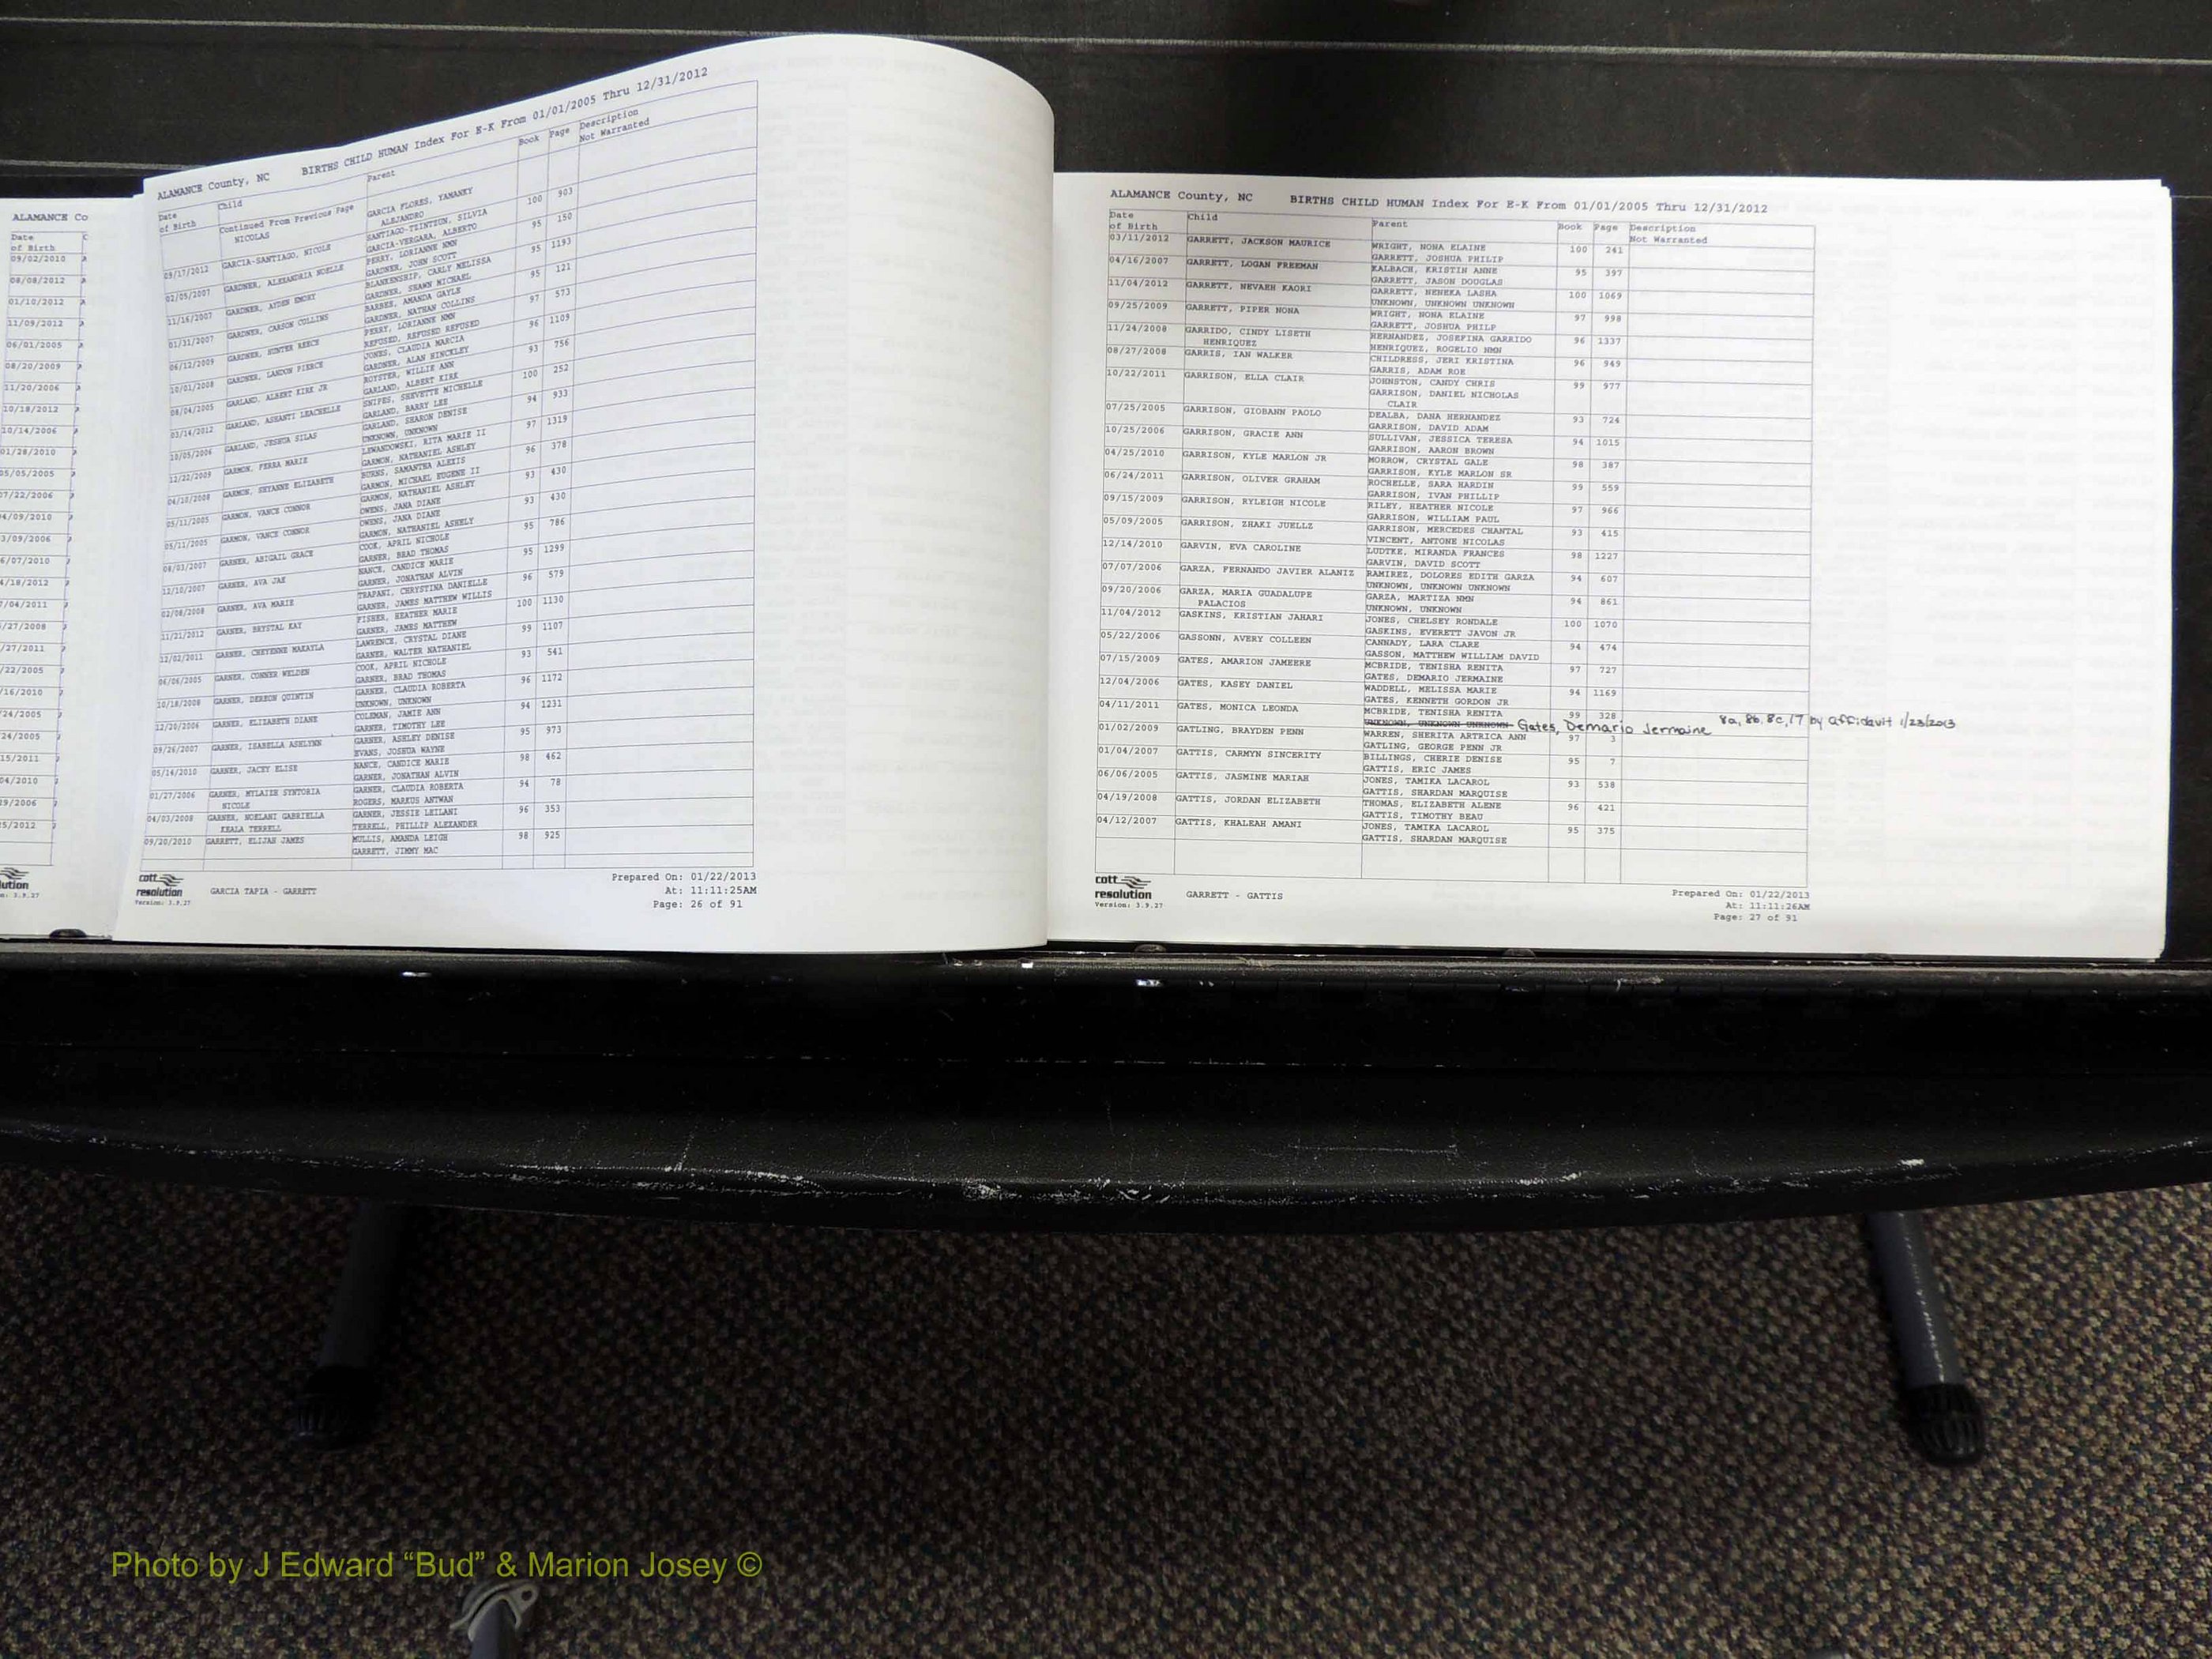 ALAMANCE Co
Date
of Birth
09/02/2010
08/08/2012
01/10/2012
11/09/2012
06/01/2005
08/20/2009
11/20/2006
10/18/2012
10/14/2006
01/28/2010
05/05/2005
07/22/2006
ALAMANCE County, NC BIRTHS CHILD HUMAN Index For E-K From 01/01/2005 Thru 12/31/2012
Date of Birth Child Parent Book Page Description
Not Warranted
Continued From Previous Page
NICOLAS GARCIA FLORES, YAMANKY
ALEJANDRO
09/17/2012 GARCIA-SANTIAGO, NICOLE SANTIAGO-TZINTZUN, SILVIA 100 903
GARCIA-VERGARA, ALBERTO
02/05/2007 GARDNER, ALEXANDRIA NOELLE PERRY, LORIANNE NMN 95 150
GARDNER, JOHN SCOTT
11/16/2007 GARDNER, AYDEN EMORY BLANKENSHIP, CARLY MELISSA 95 1193
GARDNER, SHAWN MICHAEL
01/31/2007 GARDNER, CARSON COLLINS BARBEE, AMANDA GAYLE 95 121
GARDNER, NATHAN COLLINS
06/12/2009 GARDNER, HUNTER REECE PERRY, LORIANNE NMN 97 573
REFUSED, REFUSED REFUSED
10/01/2008 GARDNER, LANDON PIERCE JONES, CLAUDIA MARCIA 96 1109
GARDNER, ALAN HINCKLEY
08/04/2005 GARLAND, ALBERT KIRK JR ROYSTER, WILLIE ANN 93 756
GARLAND, ALBERT KIRK
03/14/2012 GARLAND, ASHANTI LEACHELLE SNIPES, SHEVETTE MICHELLE 100 252
GARLAND, BARRY LEE
10/05/2006 GARLAND, JESHUA SILAS GARLAND, SHARON DENISE 94 933
UNKNOWN, UNKNOWN
12/22/2009 GARMON, FERRA MARIE LEWANDOWSKI, RITA MARIE II 97 1319
GARMON, NATHANIEL ASHLEY
04/10/2008 GARMON, SHYANNE ELIZABETH BURNS, SAMANTHA ALEXIS 96 378
GARMON, MICHAEL EUGENE II
05/11/2005 GARMON, VANCE CONNOR GARMON, NATHANIEL ASHLEY 93 430
OWENS, JANA DIANE
05/11/2005 GARMON, VANCE CONNOR OWENS, JANA DIANE 93 430
GARMON, NATHANIEL ASHELY
08/03/2007 GARNER, ABIGAIL GRACE COOK, APRIL NICHOLE 95 786
GARNER, BRAD THOMAS
12/10/2007 GARNER, AVA JAE NANCE, CANDICE MARIE 95 1299
GARNER, JONATHAN ALVIN
02/08/2008 GARNER, AVA MARIE TRAPANI, CHRYSTINA DANIELLE 96 579
GARNER, JAMES MATTHEW WILLIS
11/21/2012 GARNER, BRYSTAL KAY FISHER, HEATHER MARIE 100 1130
GARNER, JAMES MATTHEW
12/02/2011 GARNER, CHEYENNE MAKAYLA LAWRENCE, CRYSTAL DIANE 99 1107
GARNER, WALTER NATHANIEL
06/06/2005 GARNER, CONNER WELDEN COOK, APRIL NICHOLE 93 541
GARNER, BRAD THOMAS
10/18/2008 GARNER, DEREON QUINTIN GARNER, CLAUDIA ROBERTA 96 1172
UNKNOWN, UNKNOWN
12/20/2006 GARNER, ELIZABETH DIANE COLEMAN, JAMIE ANN 94 1231
GARNER, TIMOTHY LEE
09/26/2007 GARNER, ISABELLA ASHLYNN GARNER, ASHLEY DENISE 95 973
EVANS, JOSHUA WAYNE
05/14/2010 GARNER, JACEY ELISE NANCE, CANDICE MARIE 98 462
GARNER, JONATHAN ALVIN
01/27/2006 GARNER, MYLAIER SYNTORIA GARNER, CLAUDIA ROBERTA 94 78
NICOLE ROGERS, MARKUS ANTWAN
04/03/2008 GARNER, NOELANI GABRIELLA GARNER, JESSIE LEILANI 96 353
KEALA TERRELL TERRELL, PHILLIP ALEXANDER
09/20/2010 GARRETT, ELIJAH JAMES MULLIS, AMANDA LEIGH 98 925
GARRETT, JIMMY MAC
cott
resolution
Version: 3.9.27
GARCIA TAPIA - GARRETT
Prepared On: 01/22/2013
At: 11:11:25AM
Page: 26 of 91
ALAMANCE County, NC BIRTHS CHILD HUMAN Index For E-K From 01/01/2005 Thru 12/31/2012
Date of Birth Child Parent Book Page Description
Not Warranted
03/11/2012 GARRETT, JACKSON MAURICE WRIGHT, NONA ELAINE 100 241
GARRETT, JOSHUA PHILIP
04/16/2007 GARRETT, LOGAN FREEMAN KALBACH, KRISTIN ANNE 95 397
GARRETT, JASON DOUGLAS
11/04/2012 GARRETT, NEVAEH KAORI GARRETT, NENEKA LASHA 100 1069
UNKNOWN, UNKNOWN UNKNOWN
09/25/2009 GARRETT, PIPER NONA WRIGHT, NONA ELAINE 97 998
GARRETT, JOSHUA PHILP
11/24/2008 GARRIDO, CINDY LISETH HERNANDEZ, JOSEFINA GARRIDO 96 1337
HENRIQUEZ HENRIQUEZ, ROGELIO NMN
08/27/2008 GARRIS, IAN WALKER CHILDRESS, JERI KRISTINA 96 949
GARRIS, ADAM ROE
10/22/2011 GARRISON, ELLA CLAIR JOHNSTON, CANDY CHRIS 99 977
GARRISON, DANIEL NICHOLAS
CLAIR
07/25/2005 GARRISON, GIOBANN PAOLO DEALBA, DANA HERNANDEZ 93 724
GARRISON, DAVID ADAM
10/25/2006 GARRISON, GRACIE ANN SULLIVAN, JESSICA TERESA 94 1015
GARRISON, AARON BROWN
04/25/2010 GARRISON, KYLE MARLON JR MORROW, CRYSTAL GALE 98 387
GARRISON, KYLE MARLON SR
06/24/2011 GARRISON, OLIVER GRAHAM ROCHELLE, SARA HARDIN 99 559
GARRISON, IVAN PHILLIP
09/15/2009 GARRISON, RYLEIGH NICOLE RILEY, HEATHER NICOLE 97 966
GARRISON, WILLIAM PAUL
05/09/2005 GARRISON, ZHAKI JUELLZ GARRISON, MERCEDES CHANTAL 93 415
VINCENT, ANTONE NICOLAS
12/14/2010 GARVIN, EVA CAROLINE LUDTKE, MIRANDA FRANCES 98 1227
GARVIN, DAVID SCOTT
07/07/2006 GARZA, FERNANDO JAVIER ALANIZ RAMIREZ, DOLORES EDITH GARZA 94 607
UNKNOWN, UNKNOWN UNKNOWN
09/20/2006 GARZA, MARIA GUADALUPE GARZA, MARTIZA NMN 94 861
PALACIOS UNKNOWN, UNKNOWN
11/04/2012 GASKINS, KRISTIAN JAHARI JONES, CHELSEY RONDALE 100 1070
GASKINS, EVERETT JAVON JR
05/22/2006 GASSONN, AVERY COLLEEN CANNADY, LARA CLARE 94 474
GASSON, MATTHEW WILLIAM DAVID
07/15/2009 GATES, AMARION JAMEERE MCBRIDE, TENISHA RENITA 97 727
GATES, DEMARIO JERMAINE
12/04/2006 GATES, KASEY DANIEL WADDELL, MELISSA MARIE 94 1169
GATES, KENNETH GORDON JR
04/11/2011 GATES, MONICA LEONDA MCBRIDE, TENISHA RENITA 99 328
UNKNOWN, UNKNOWN UNKNOWN Gates, Demario Jermaine 8a, 8b, 8c, 17 by affidavit 1/23/2013
01/02/2009 GATLING, BRAYDEN PENN WARREN, SHERITA ARTRICA ANN 97 3
GATLING, GEORGE PENN JR
01/04/2007 GATTIS, CARMYN SINCERITY BILLINGS, CHERIE DENISE 95 7
GATTIS, ERIC JAMES
06/06/2005 GATTIS, JASMINE MARIAH JONES, TAMIKA LACAROL 93 538
GATTIS, SHARDAN MARQUISE
04/19/2008 GATTIS, JORDAN ELIZABETH THOMAS, ELIZABETH ALENE 96 421
GATTIS, TIMOTHY BEAU
04/12/2007 GATTIS, KHALEAH AMANI JONES, TAMIKA LACAROL 95 375
GATTIS, SHARDAN MARQUISE
cott
resolution
Version: 3.9.27
GARRETT - GATTIS
Prepared On: 01/22/2013
At: 11:11:26AM
Page: 27 of 91
Photo by J Edward “Bud” & Marion Josey ©